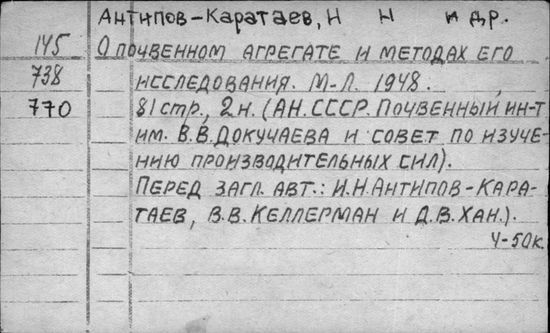 Антипов-Каратаев, Н Н и др.
145 О почвенном агрегате и методах его
738 исследования. М-Л. 1948.
770 81 стр., 2 н. (АН. СССР. Почвенный ин-т
им. В.В. Докучаева и совет по изуче-
нию производительных сил).
Перед загл. авт.: И.Н. Антипов-Кара-
таев, В.В. Келлерман и Д.В. Хан.).
4-50к.